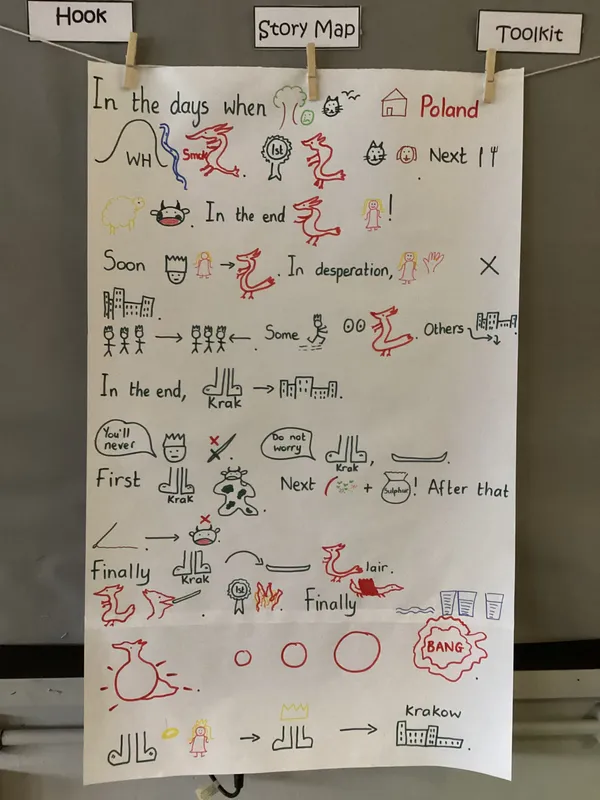 Hook
Story Map
Toolkit
In the days when Poland
WH Smok. 1st . Next
. In the end !
Soon . In desperation,
.
Some . Others
In the end, Krak .
You'll never Do not worry Krak, .
First Krak . Next + Sulphur! After that
.
Finally Krak lair.
. 1st . Finally
. BANG
Krakow
.